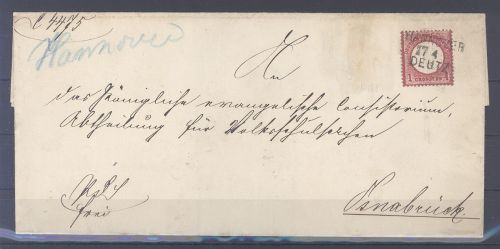 C 4475
Hannover
HANNOVER
17 4
DEUTZ
1
An
das Königliche evangelische Consistorium,
Abtheilung für Volksschulsachen
frei
Osnabrück.